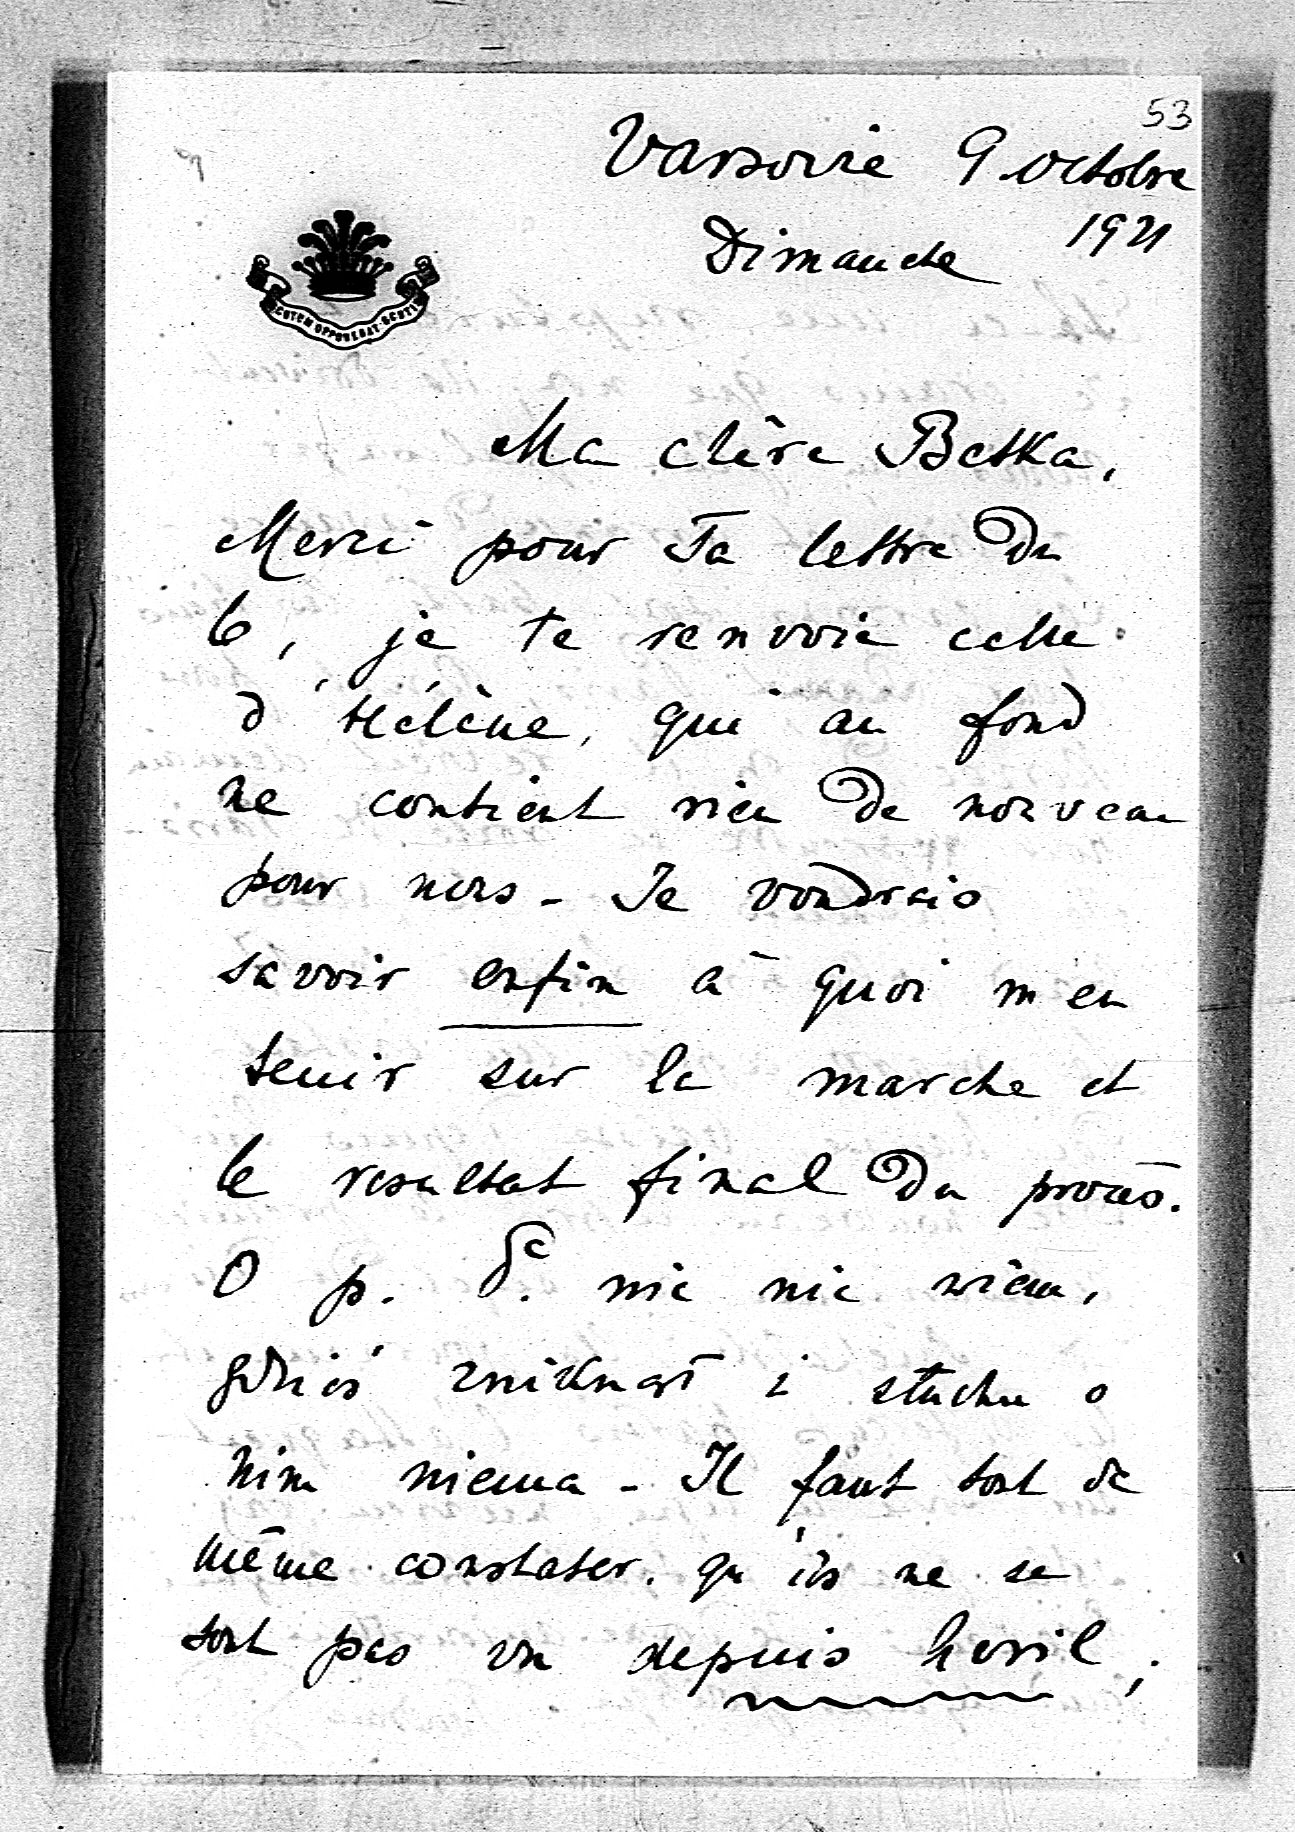 53
Varsovie 9 octobre
1921
Dimanche
SCUTUM OPPONEBAT SCUTIS
Ma chère Betka,
Merci pour Ta lettre du
6, je te renvoie celle
d'Hélène, qui au fond
ne contient rien de nouveau
pour nous - Je voudrais
savoir enfin à quoi m'en
tenir sur la marche et
le resultat final du procès.
O p. nic nic wiem,
gdzieś zniknął i słuchu o
nim niema - Il faut tout de
même constater. qu'ils ne se
sont pas vu depuis Avril,